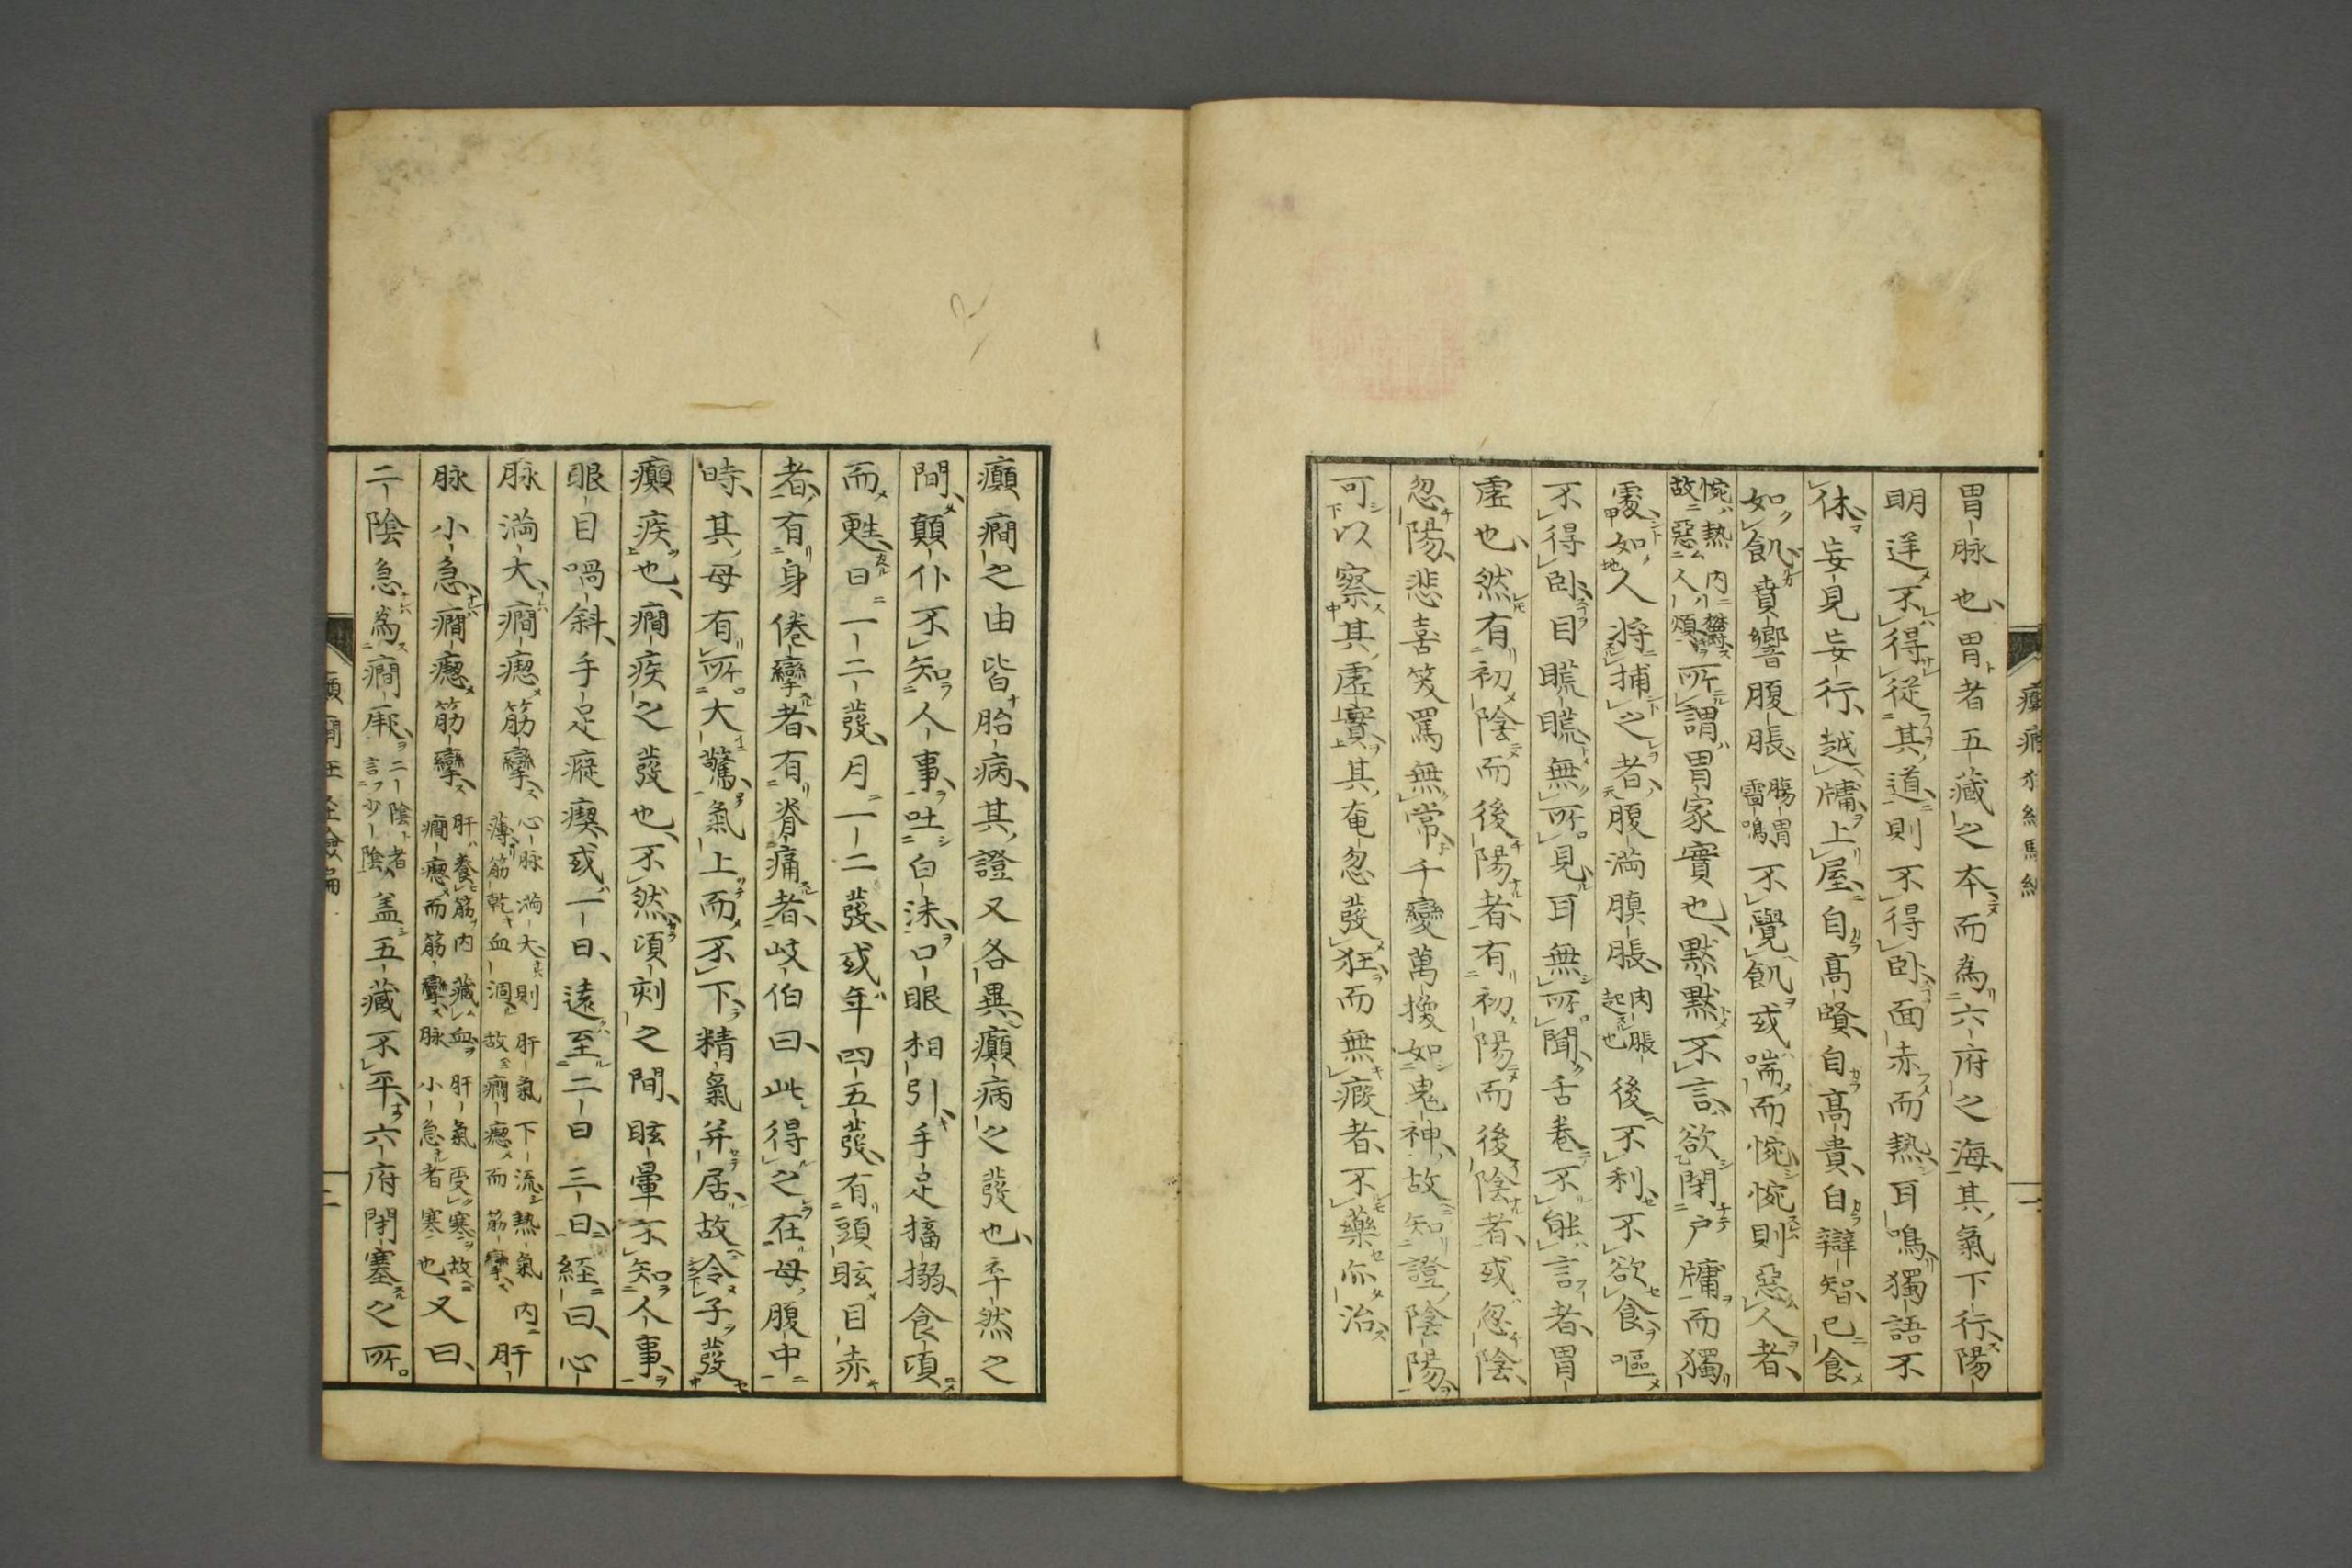 胃脉也胃者五藏之本而為六府之海其氣下行陽
明逆不得從其道則不得卧面赤而熱耳鳴獨語不
休妄見妄行越牗上屋自高賢自高貴自辯智已食
如飢賁響腹脹腸胃雷鳴不覺飢或喘而惋惋則惡人者
惋熱内欝故惡人煩所謂胃家實也黙黙不言欲閉戸牗而獨
處如人将捕之者腹満䐜脹肉脹起也後不利不欲食嘔
不得卧目䀮䀮無所見耳無所聞舌巻不能言者胃
虚也然有初陰而後陽者有初陽而後陰者或忽陰
忽陽悲喜笑罵無常千變萬換如鬼神故知證陰陽
可以察其虚實其奄忽發狂而無癥者不藥而治
癲癇之由皆胎病其證又各異癲病之發也卒然之
間顛仆不知人事吐白沫口眼相引手足搐搦食頃
而甦日一二發月一二發或年四五發有頭眩目赤
者有身倦攣者有脊痛者岐伯曰此得之在母腹中
時其母有所大驚氣上而不下精氣并居故令子發
癲疾也癇疾之發也不然頃刻之間眩暈不知人事
眼目喎斜手足癡瘈或一日遠至二日三日經曰心
脉満大癇瘛筋攣心脉満大則肝氣下流熱氣内薄筋乾血涸故癇瘛而筋攣肝
脉小急癇瘛筋攣肝養筋内藏血肝氣受寒故癇瘛而筋攣脉小急者寒也又曰
二陰急為癇厥二陰者言少陰盖五藏不平六府閉塞之所